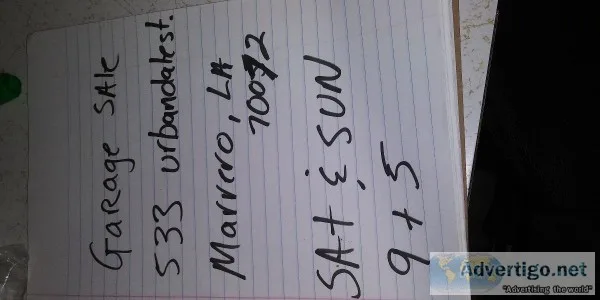 GaRage SAle
533 urbandalest.
Marrero, LA
70072
SAt & SUN
9 + 5
Advertigo.net
"Advertising the world"